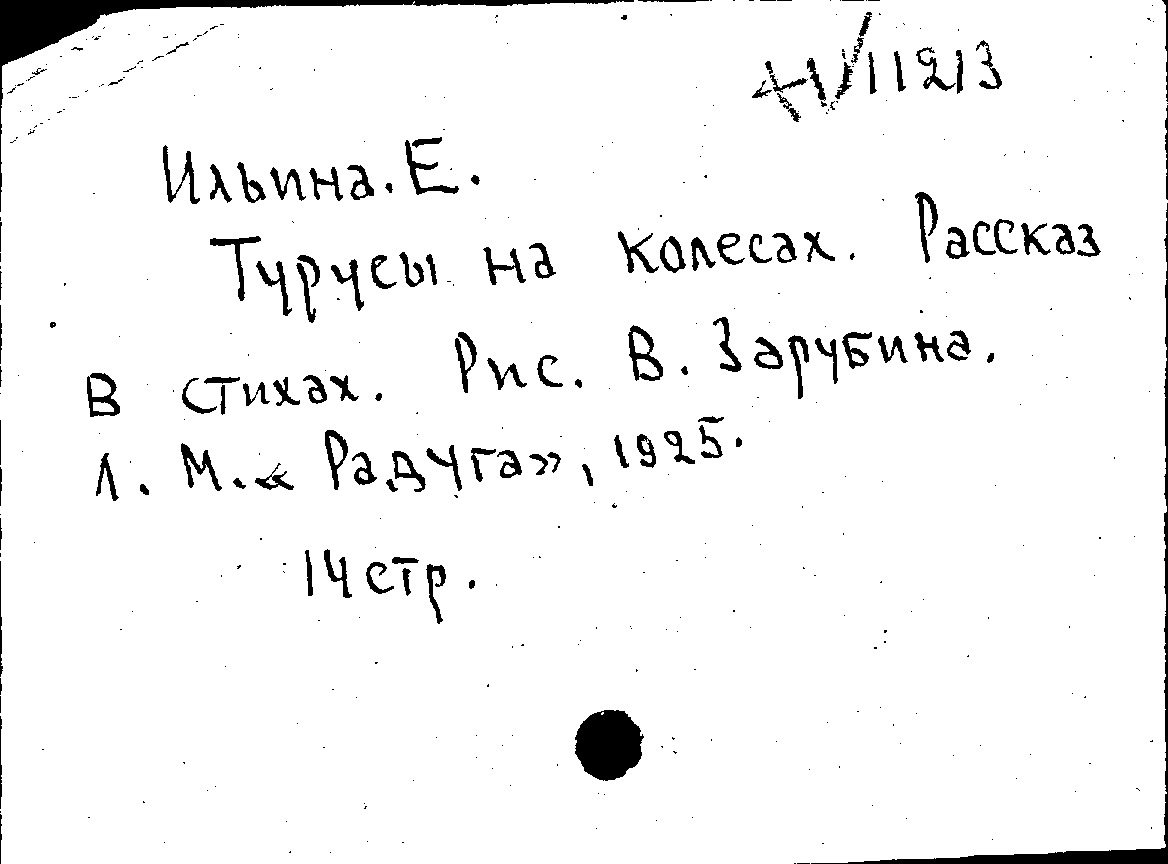 11213
Ильина. Е.
Турусы на колесах. Рассказ
в стихах. Рис. В. Зарубина.
Л. М. «Радуга», 1925.
14 стр.